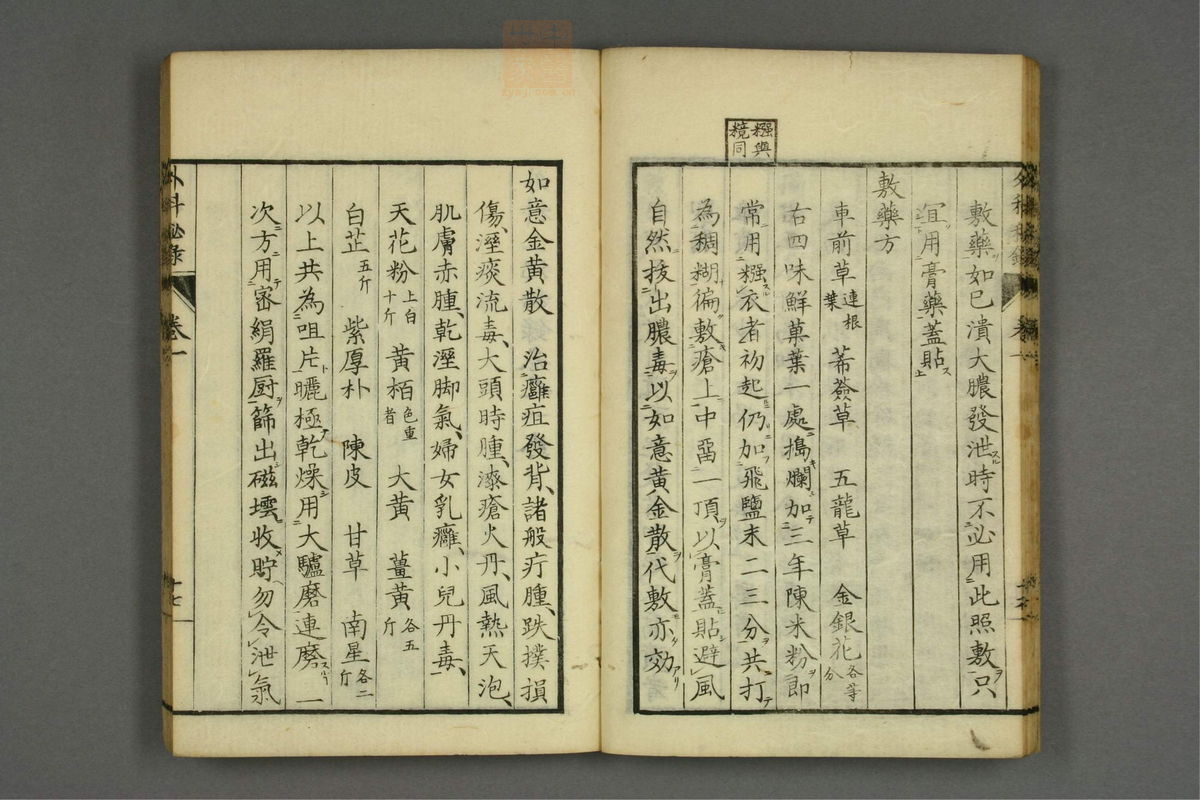 糨與
糡同
敷藥如已潰大膿發泄時不必用此照敷只
宜用膏藥蓋貼
敷藥方
車前草連根葉 豨薟草 五龍草 金銀花各等分
右四味鮮菓葉一處搗爛加三年陳米粉即
常用糨衣者初起仍加飛鹽末二三分共打
為稠糊徧敷瘡上中畱一頂以膏蓋貼避風
自然拔出膿毒以如意黃金散代敷亦効
如意金黃散 治癰疽發背、諸般疔腫、跌撲損
傷、溼痰流毒、大頭時腫、漆瘡火丹、風熱天泡、
肌膚赤腫、乾溼脚氣、婦女乳癰、小兒丹毒、
天花粉上白十斤 黃栢色重者 大黃 薑黃各五斤
白芷五斤 紫厚朴 陳皮 甘草 南星各二斤
以上共為咀片曬極乾燥用大驢磨連磨一
次方用密絹羅厨篩出磁罎收貯勿令泄氣
外科秘錄 卷一 十七